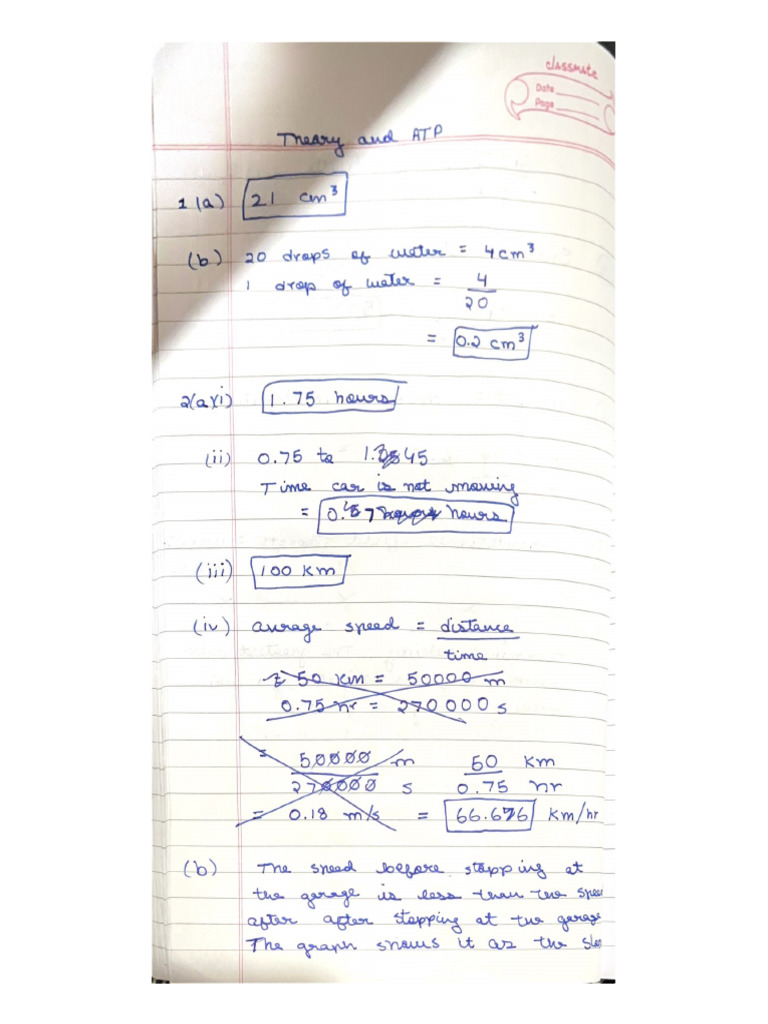 classmate
Date
Page
Theory and ATP
1(a) 21 cm³
(b) 20 drops of water = 4cm³
1 drop of water = 4
20
= 0.2 cm³
2(a)(i) 1.75 hours
(ii) 0.75 to 1. 45
Time car is not moving
= 0. 7 hours
(iii) 100 km
(iv) average speed = distance
time
50 km = 50000 m
0.75 hr = 270000 s
= 50000 m 50 km
270000 s 0.75 hr
= 0.18 m/s = 66.6 6 km/hr
(b) The speed before stopping at
the garage is less than the spee
after after stopping at the garage
The graph shows it as the slo